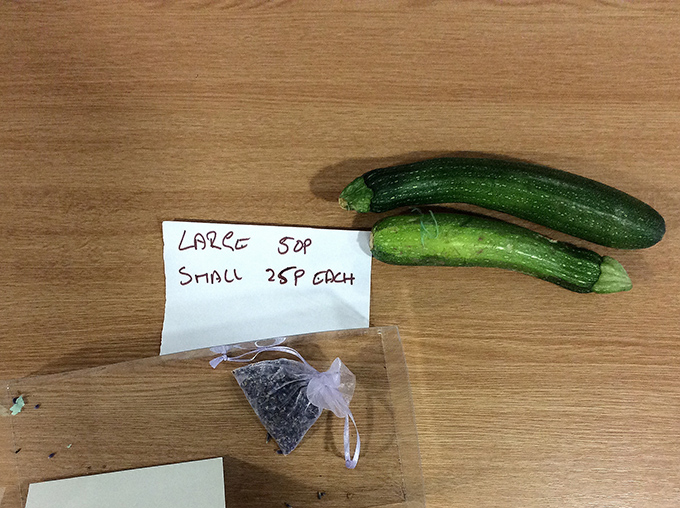 LARGE 50P
SMALL 25P EACH